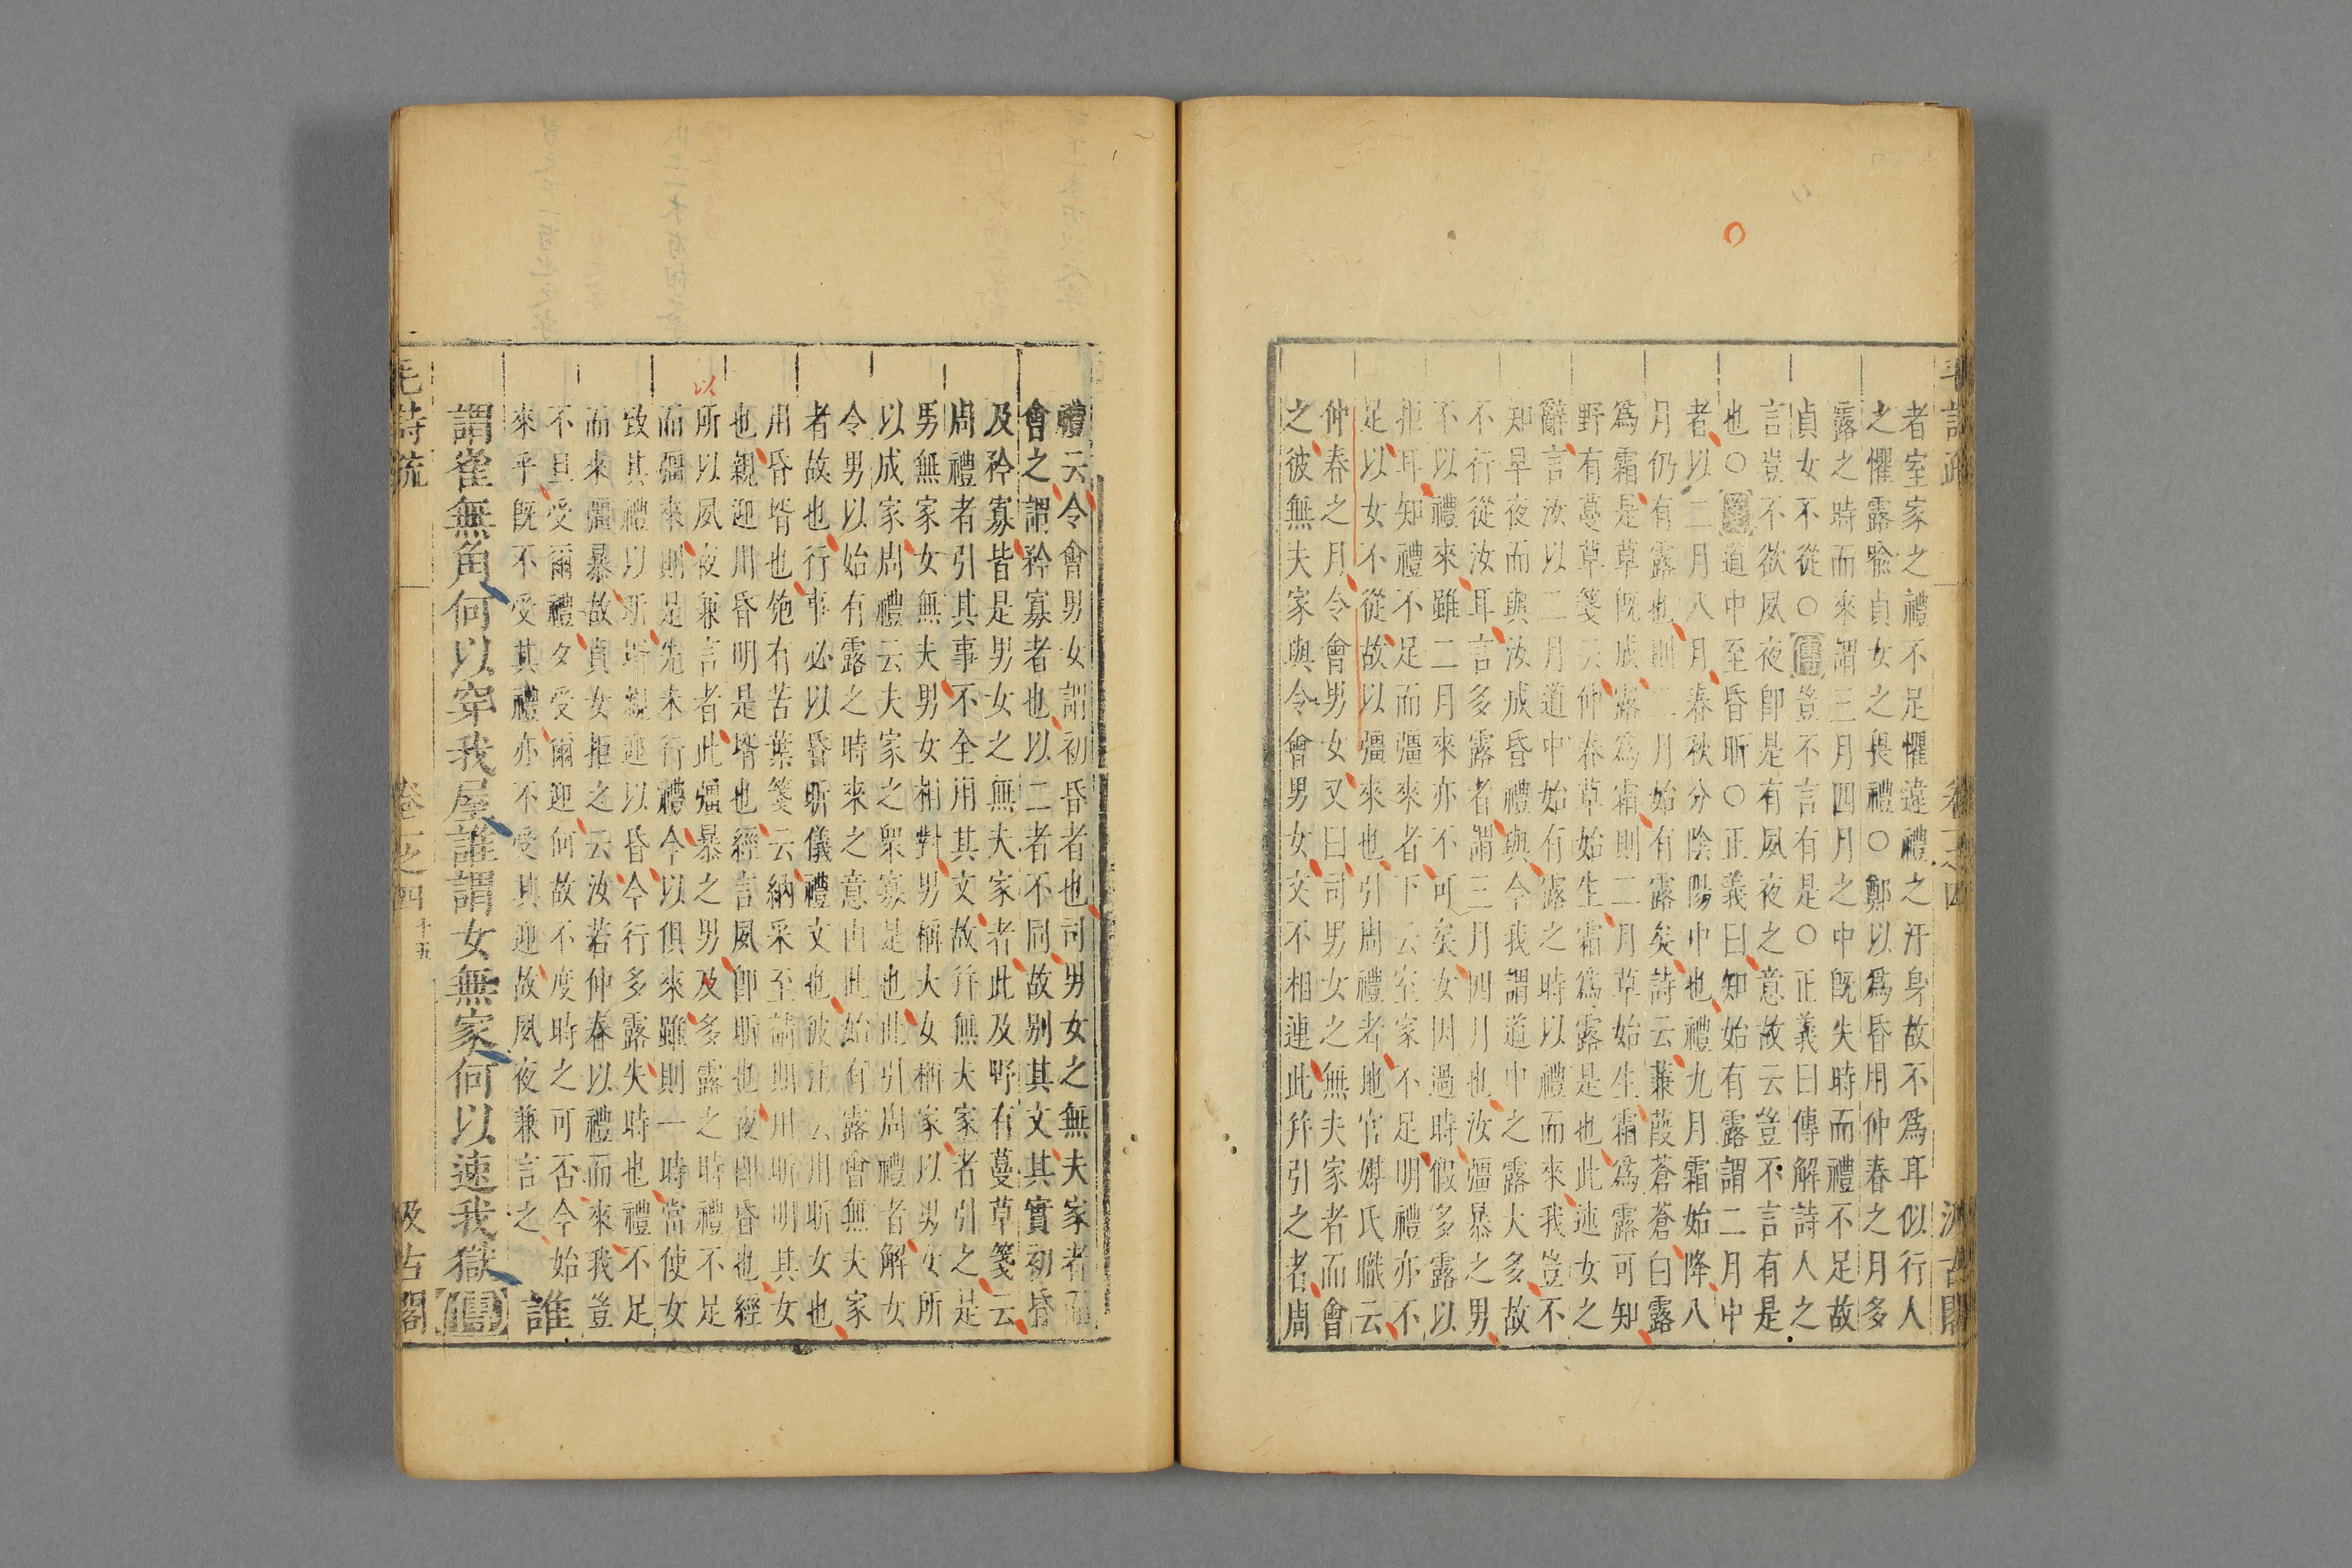 者室家之禮不足懼違禮之汙身故不爲耳似行人
之懼露喻貞女之畏禮○鄭以爲昏用仲春之月多
露之時而來謂三月四月之中既失時而禮不足故
貞女不從○傳豈不言有是○正義曰傳解詩人之
言豈不欲夙夜卽是有夙夜之意故云豈不言有是
也○箋道中至昏昕○正義曰知始有露謂二月中
者以二月八月春秋分陰陽中也禮九月霜始降八
月仍有露也則二月始有露矣詩云蒹葭蒼蒼白露
爲霜是草既成露爲霜則二月草始生霜爲露可知
野有蔓草箋云仲春草始生霜爲露是也此述女之
辭言汝以二月道中始有露之時以禮而來我豈不
知早夜而與汝成昏禮與今我謂道中之露大多故
不行從汝耳言多露者謂三月四月也汝彊暴之男
不以禮來雖二月來亦不可矣女因過時假多露以
拒耳知禮不足而彊來者下云室家不足明禮亦不
足以女不從故以彊來也引周禮者地官媒氏職云
仲春之月令會男女又曰司男女之無夫家者而會
之彼無夫家與令會男女文不相連此并引之者周
禮云令會男女謂初昏者也司男女之無夫家者而
會之謂矜寡者也以二者不同故别其文其實初昏
及矜寡皆是男女之無夫家者此及野有蔓草箋云
周禮者引其事不全用其文故并無夫家者引之是
男無家女無夫男女相對男稱大女稱家以男女所
以成家周禮云夫家之衆寡是也此引周禮者解女
令男以始有露之時來之意由此始有露會無夫家
者故也行事必以昏昕儀禮文也彼注云用昕女也
用昏壻也匏有苦葉箋云納采至請期用昕明其女
也親迎用昏明是壻也經言夙卽昕也夜卽昏也經
以
所以夙夜兼言者此彊暴之男及多露之時禮不足
而彊來則是先未行禮今以俱來雖則一時當使女
致其禮以昕昕親迎以昏今行多露失時也禮不足
而來彊暴故貞女拒之云汝若仲春以禮而來我豈
不旦受爾禮夕受爾迎何故不度時之可否今始
來乎既不受其禮亦不受其迎故夙夜兼言之 誰
謂雀無角何以穿我屋誰謂女無家何以速我獄傳
毛詩疏 卷一之四 十五 汲古閣